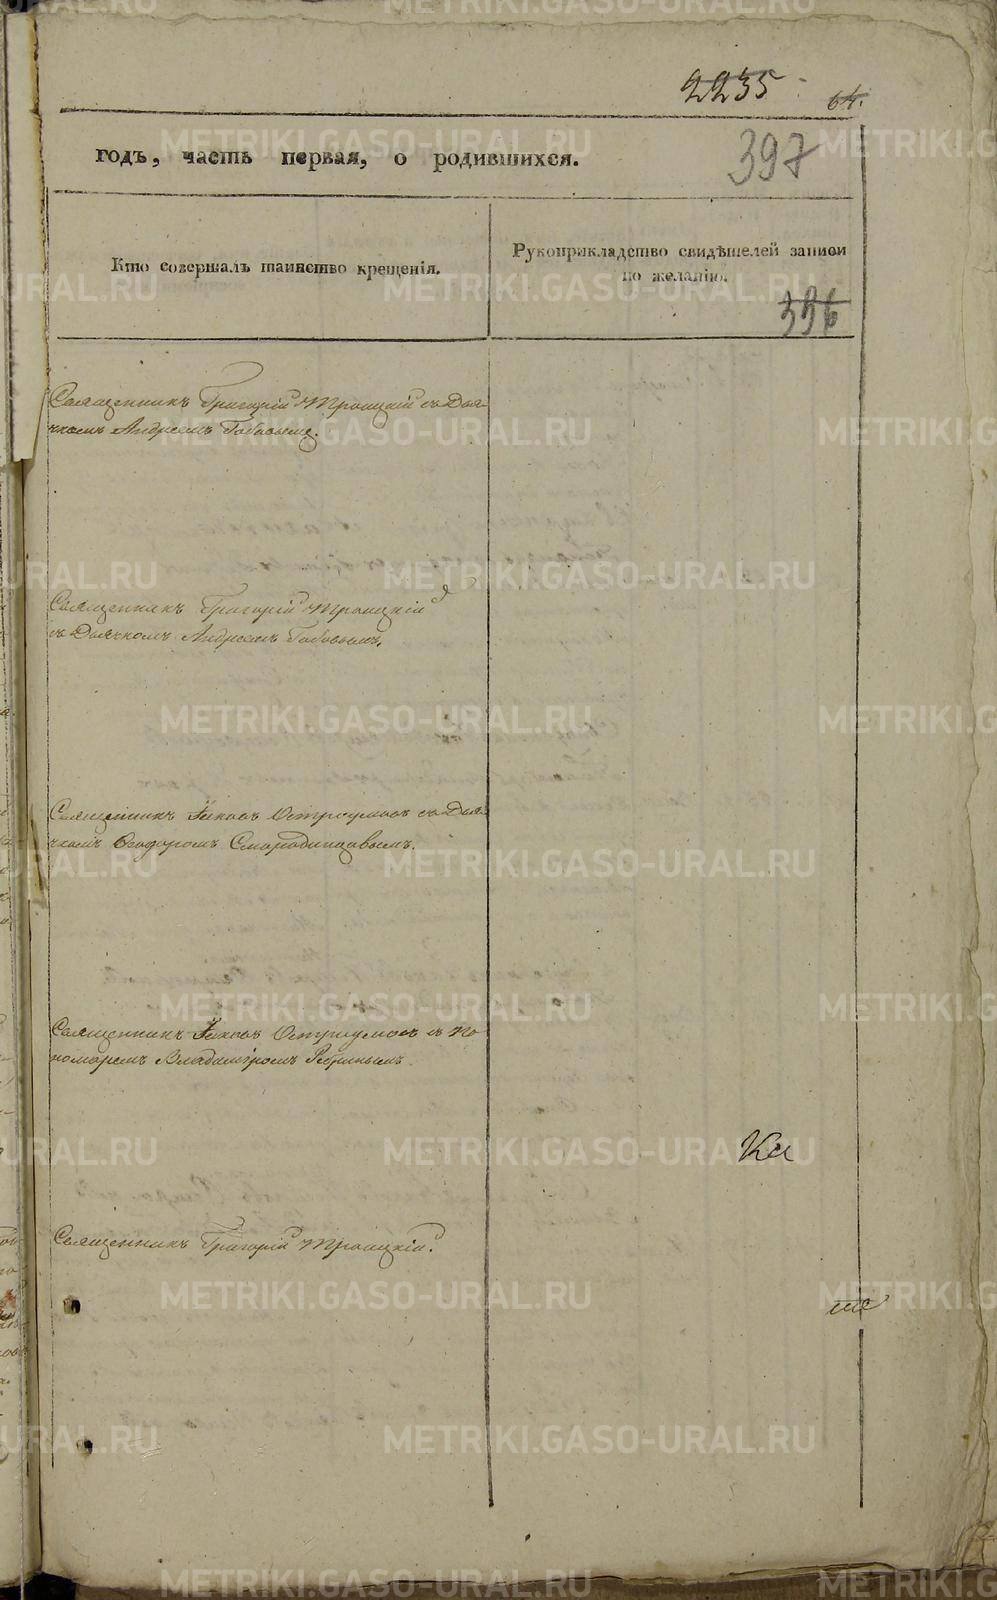 2235
64.
годъ, часть первая, о родившихся.
397
Кто совершалъ таинство крещенія.
Рукоприкладство свидѣтелей записи
по желанію.
396
Священникъ Григорій Троицкій съ Дья-
чкомъ Андреемъ Бабовымъ.
Священникъ Григорій Троицкій
съ Дьячкомъ Андреемъ Бабовымъ.
Священникъ Іаковъ Остроумовъ съ Дья-
чкомъ Ѳеодоромъ Смородинцовымъ.
Священникъ Іаковъ Остроумовъ съ По-
номаремъ Владиміромъ
Священникъ Григорій Троицкій.
METRIKI.GASO-URAL.RU